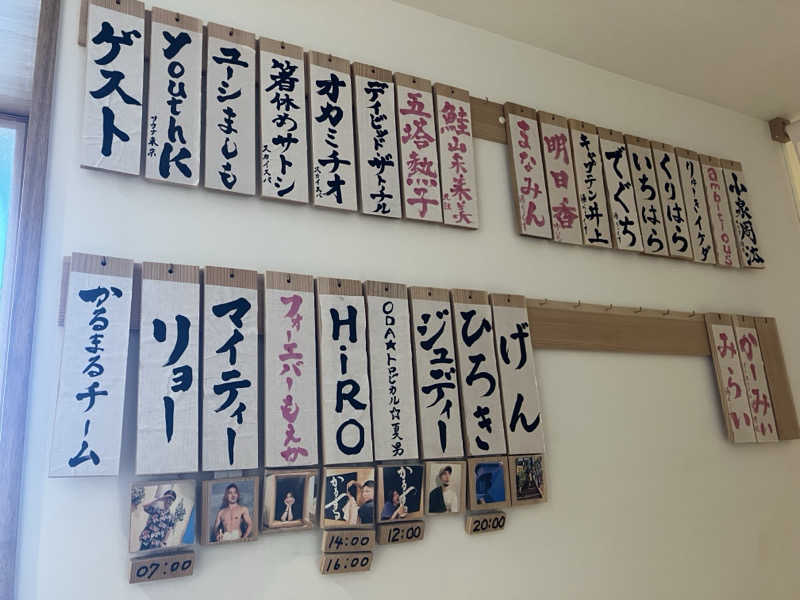 ゲスト
youthK
サウナ東京
ユージましも
箸休めサトシ
スカイスパ
オカミチオ
スカイスパ
デイビッドザトナル
五塔熱子
鮭山未来美
まなみん
明日香
キャサテン井上
でぐち
いちはら
くりはら
りゅーきイケダ
ambitious
小泉周汰
かるまるチーム
リョー
マイティー
フォーエバーもえか
HiRO
ODA☆トロピカル☆夏男
ジュディー
ひろき
げん
みらい
かーみい
かるまる
かるまる
07:00
14:00
16:00
12:00
20:00